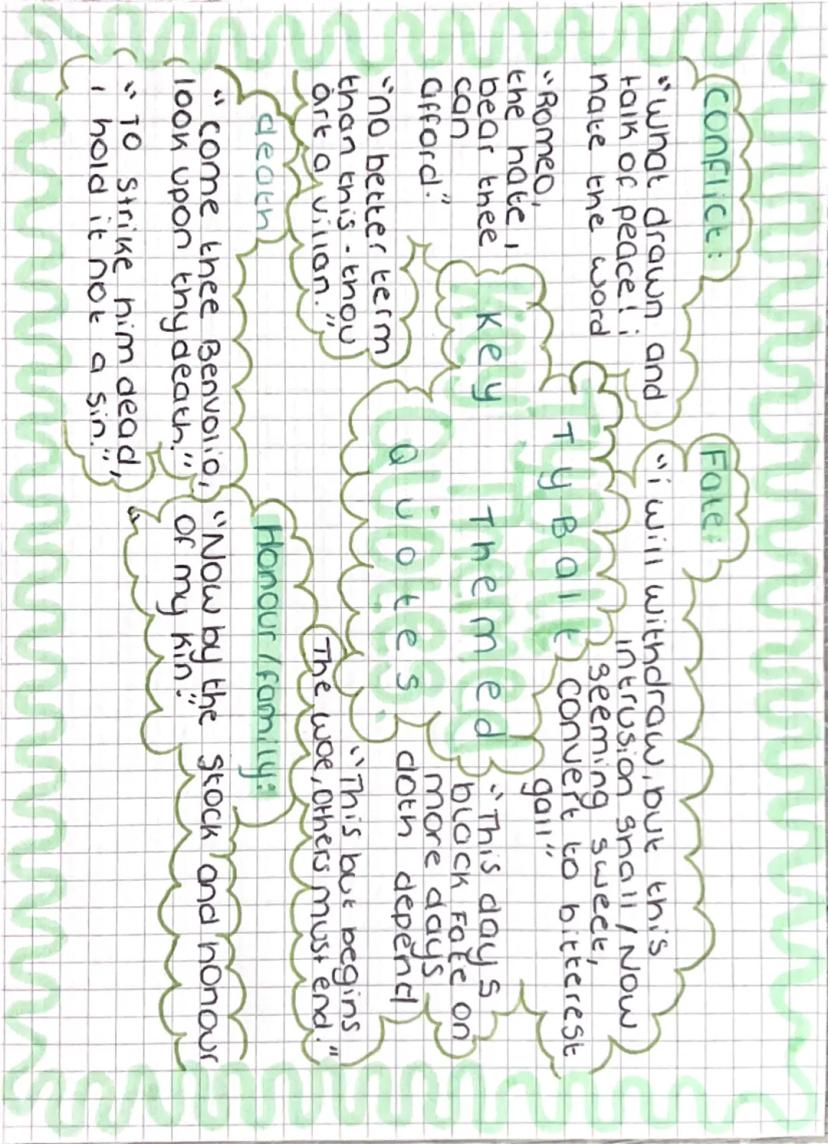 Conflict:
"What drawn and
talk of peace! i
hate the word
"Romeo,
the hate i
bear thee
can
afford."
"no better term
than this - thou
art a villan."
death
"come thee Benvolio,
look upon thy death."
"To strike him dead,
i hold it not a sin."
Tybalt
Key Themed
Quotes.
Fate:
"i will withdraw, but this
intrusion small / Now
seeming sweet,
convert to bitterest
gall"
"This days
black fate on
more days
doth depend
"This but begins
The woe, others must end."
Honour / family:
"Now by the stock and honour
of my kin."